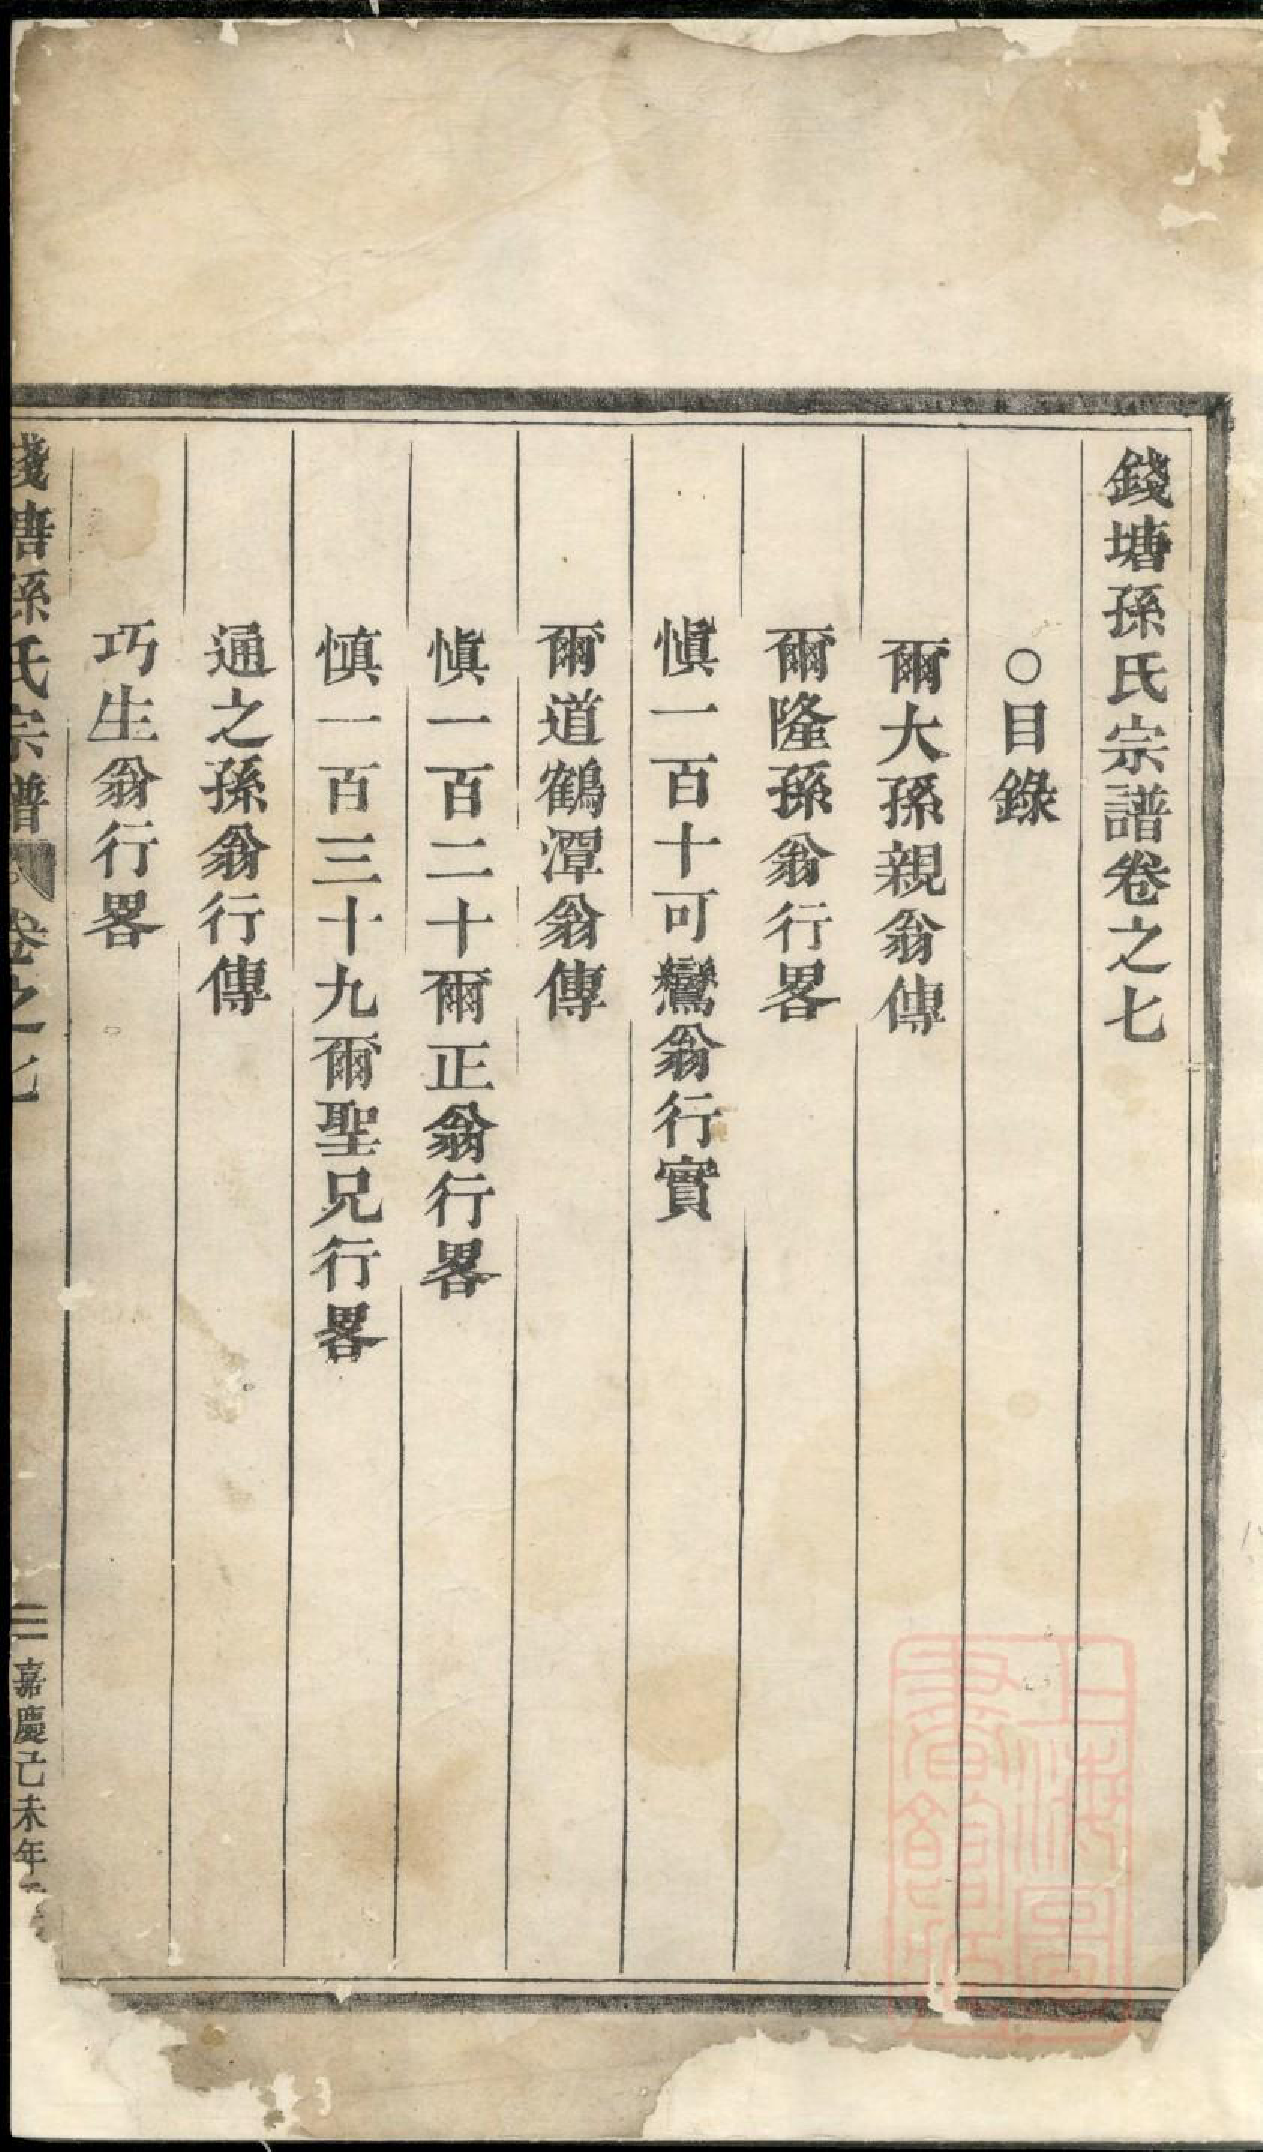 錢塘孫氏宗譜卷之七
○目錄
爾大孫親翁傳
爾隆孫翁行畧
慎一百十可鸞翁行實
爾道鶴潭翁傳
慎一百二十爾正翁行畧
慎一百三十九爾聖兄行畧
通之孫翁行傳
巧生翁行畧
錢塘孫氏宗譜 卷之七 嘉慶己未年
上海圖書館藏